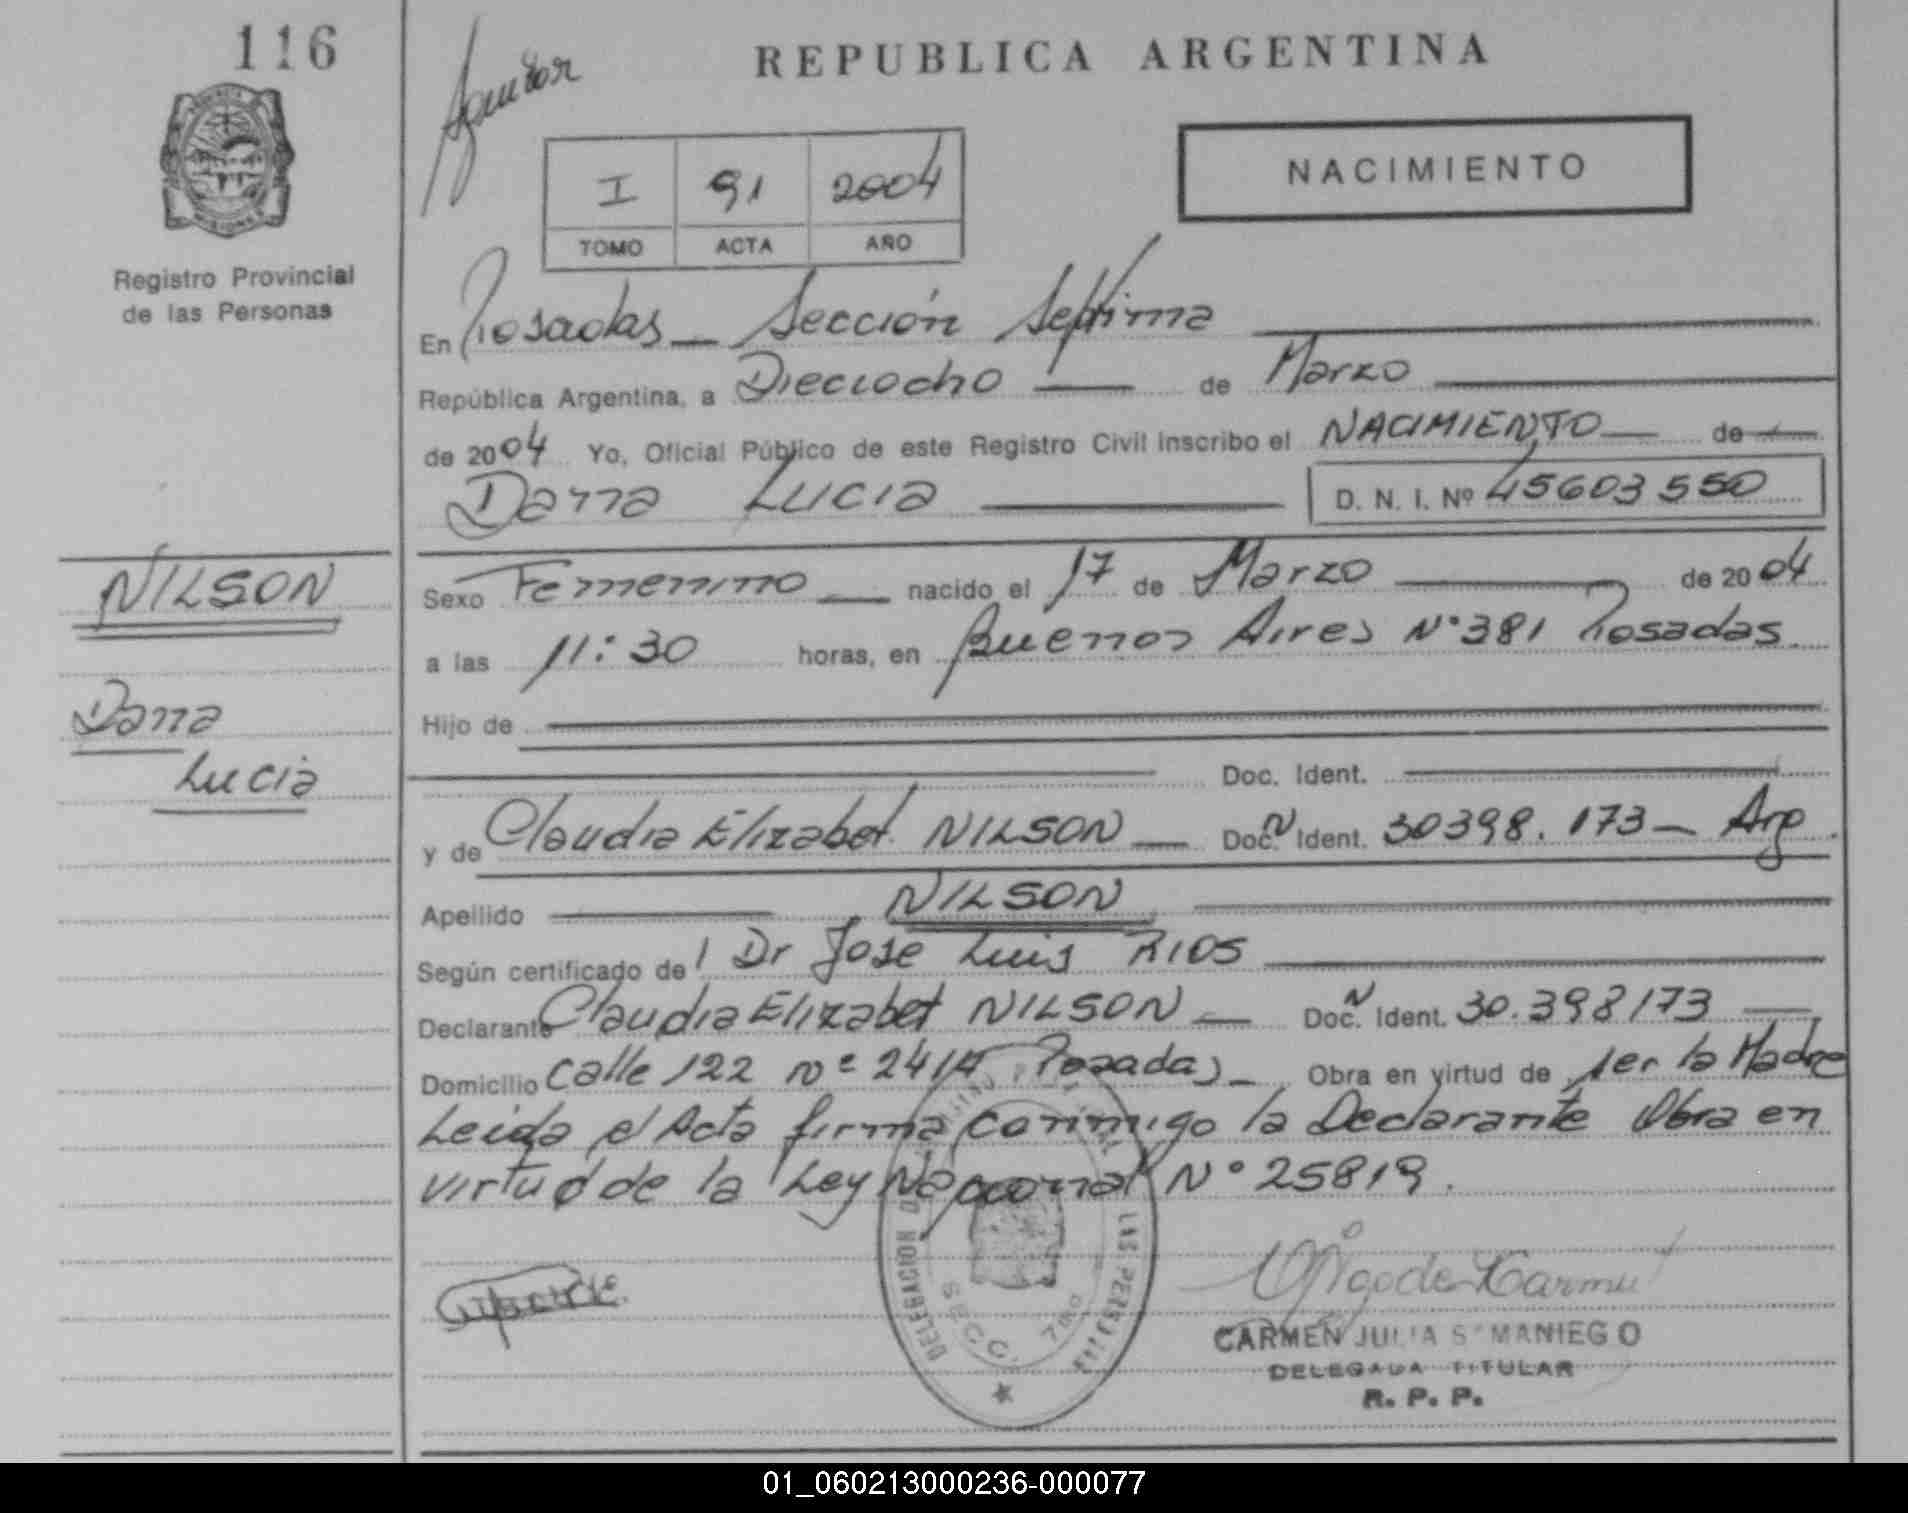 116
REPUBLICA ARGENTINA
NACIMIENTO
I 91 2004
TOMO ACTA AÑO
Registro Provincial
de las Personas
En Posadas Sección Septima
República Argentina, a Dieciocho de Marzo
de 2004 Yo, Oficial Público de este Registro Civil Inscribo el NACIMIENTO de
Dana Lucia D. N. I. Nº 45603550
NILSON
Dana
Lucia
Sexo Femenino nacido el 17 de Marzo de 2004
a las 11:30 horas, en Buenos Aires Nº 381 Posadas
Hijo de
Doc. Ident.
y de Claudia Elizabet NILSON Doc. N Ident. 30398.173 - Arg
Apellido NILSON
Según certificado del Dr Jose Luis RIOS
Declarante Claudia Elizabet NILSON Doc. N Ident. 30.398173
Domicilio Calle 122 nº 2414 Posadas Obra en virtud de ser la Madre
Leida el Acta firma conmigo la Declarante Obra en
virtud de la Ley Nacional Nº 25819.
DELEGACION LAS PERSONAS
SECC. 7
CARMEN JULIA SAMANIEGO
DELEGADA TITULAR
R. P. P.
01_060213000236-000077